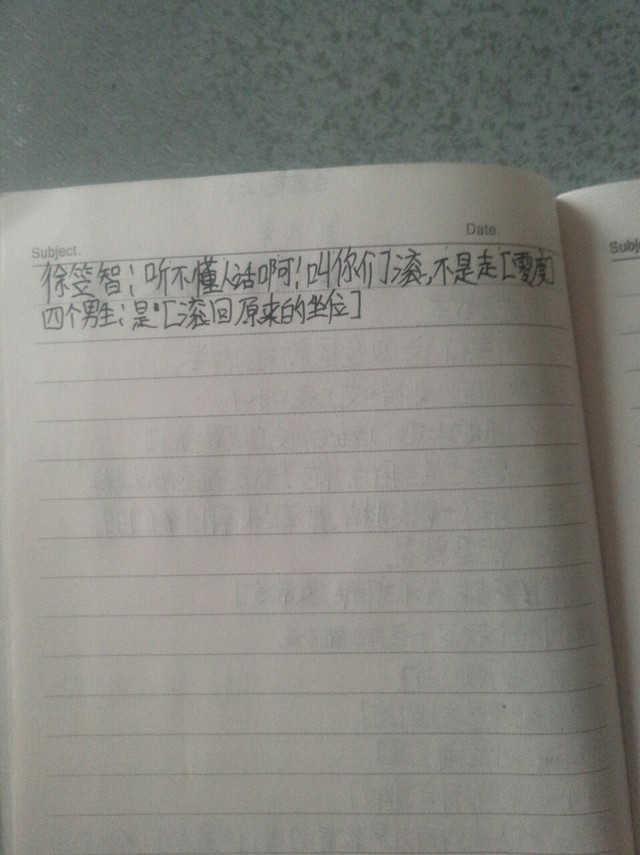 Subject. Date.
徐笠智:听不懂人话啊!叫你们滚,不是走[零度]
四个男生:是"[滚回原来的坐位]